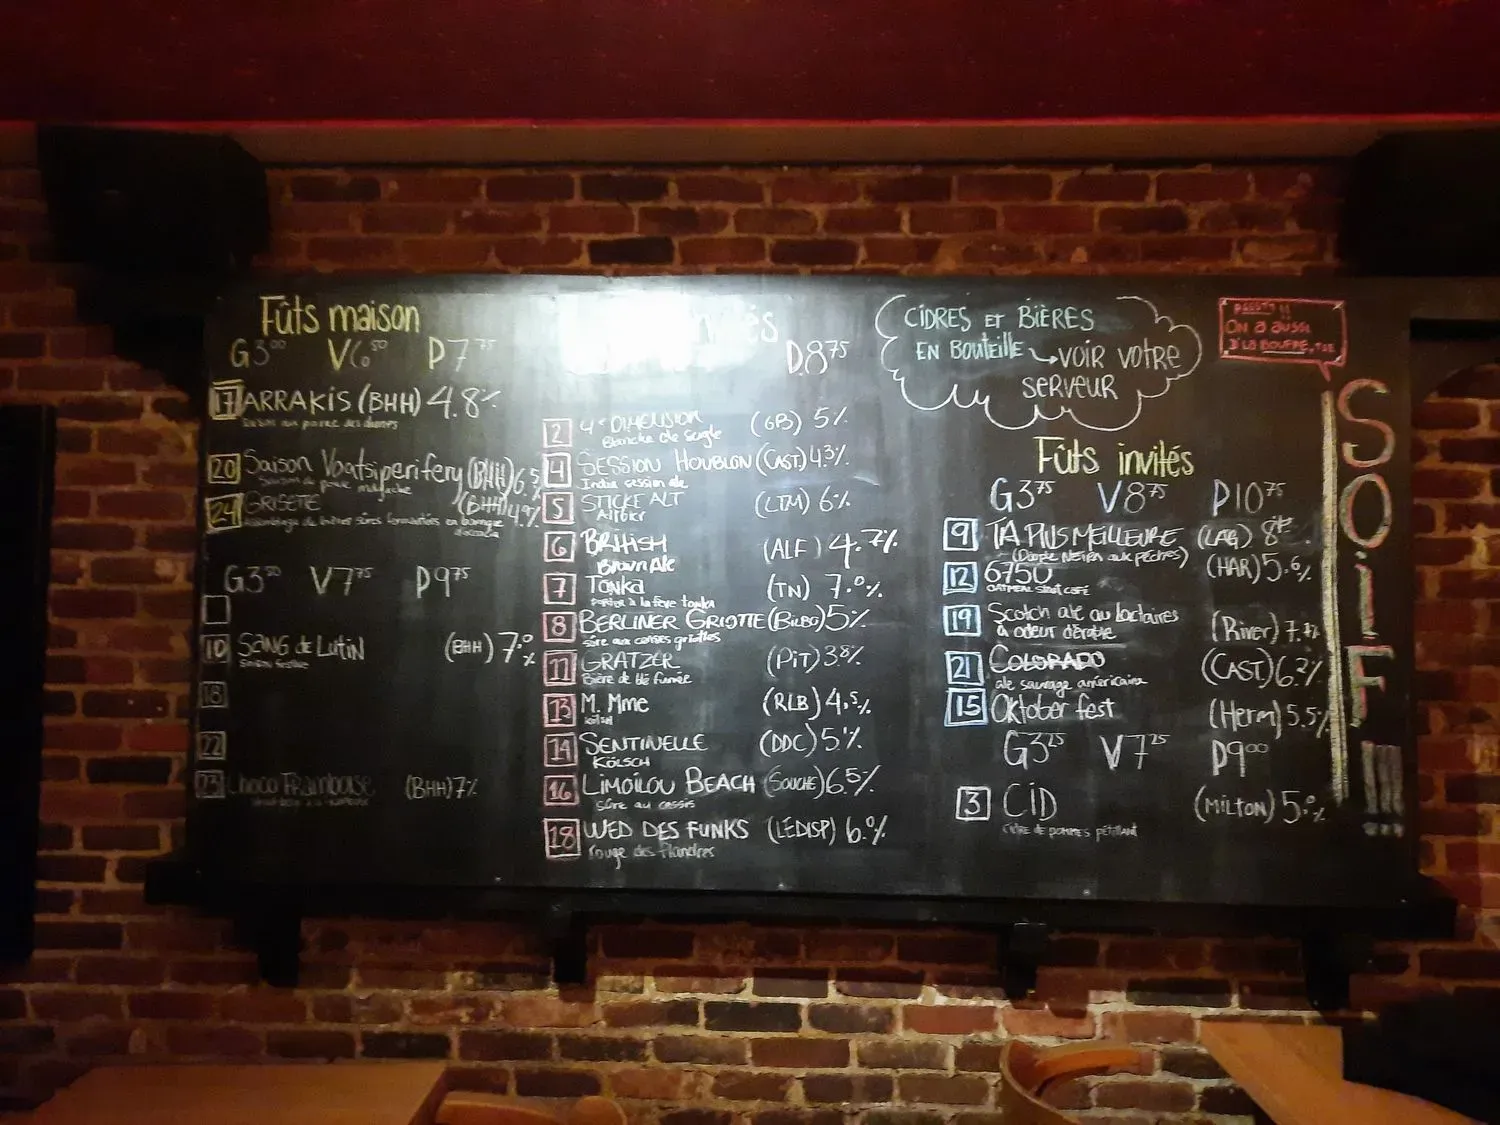 Fûts maison
G3⁰⁰ V6⁵⁰ P7⁷⁵
17 ARRAKIS (BHH) 4.8%
20 Saison Vogtsiperifery (BHH) 6.5%
24 GRISETE (BHH) 4.9%
G3⁵⁰ V7⁷⁵ P9⁷⁵
10 SANG de LUTIN (BHH) 7.0%
saison festive
18
22
23 Choco Framboise (BHH) 7%
P8⁷⁵
2 4e DIMENSION (GB) 5%
Blanche de Seigle
4 SESSION HOUBLON (CAST) 4.3%
India session ale
5 STICKE ALT (LTM) 6%
Altbier
6 BRITISH (ALF) 4.7%
Brown Ale
7 Tonka (TN) 7.0%
porter à la fève tonka
8 BERLINER GRIOTTE (BilBo) 5%
sûre aux cerises griottes
11 GRATZER (PiT) 3.8%
Bière de blé fumée
13 M. Mme (RLB) 4.5%
kölsh
14 SENTINELLE (DDC) 5%
KÖLSCH
16 LIMOILOU BEACH (SOUCHE) 6.5%
Sûre au cassis
18 WED DES FUNKS (LEDISP) 6.0%
rouge des flandres
CIDRES ET BIÈRES
EN BOUTEILLE VOIR VOTRE
SERVEUR
PSSST!!
ON a aussi
D'LA BOUFFE, TSE
Fûts invités
G3⁷⁵ V8⁷⁵ P10⁷⁵
9 TA PLUS MEILLEURE (LAG) 8%
(Double NEIPA aux pêches)
12 675U (HAR) 5.6%
OATMEAL stout CAFÉ
19 Scotch ale au lactaires (River) 7.
à odeur d'érable
21 COLORADO (CAST) 6.2%
ale sauvage américaine
15 Oktober fest (Herm) 5.5%
G3²⁵ V7²⁵ P9⁰⁰
3 CID (MILTON) 5.0%
CIDRE DE POMMES PÉTILLANT
SOiF!!!